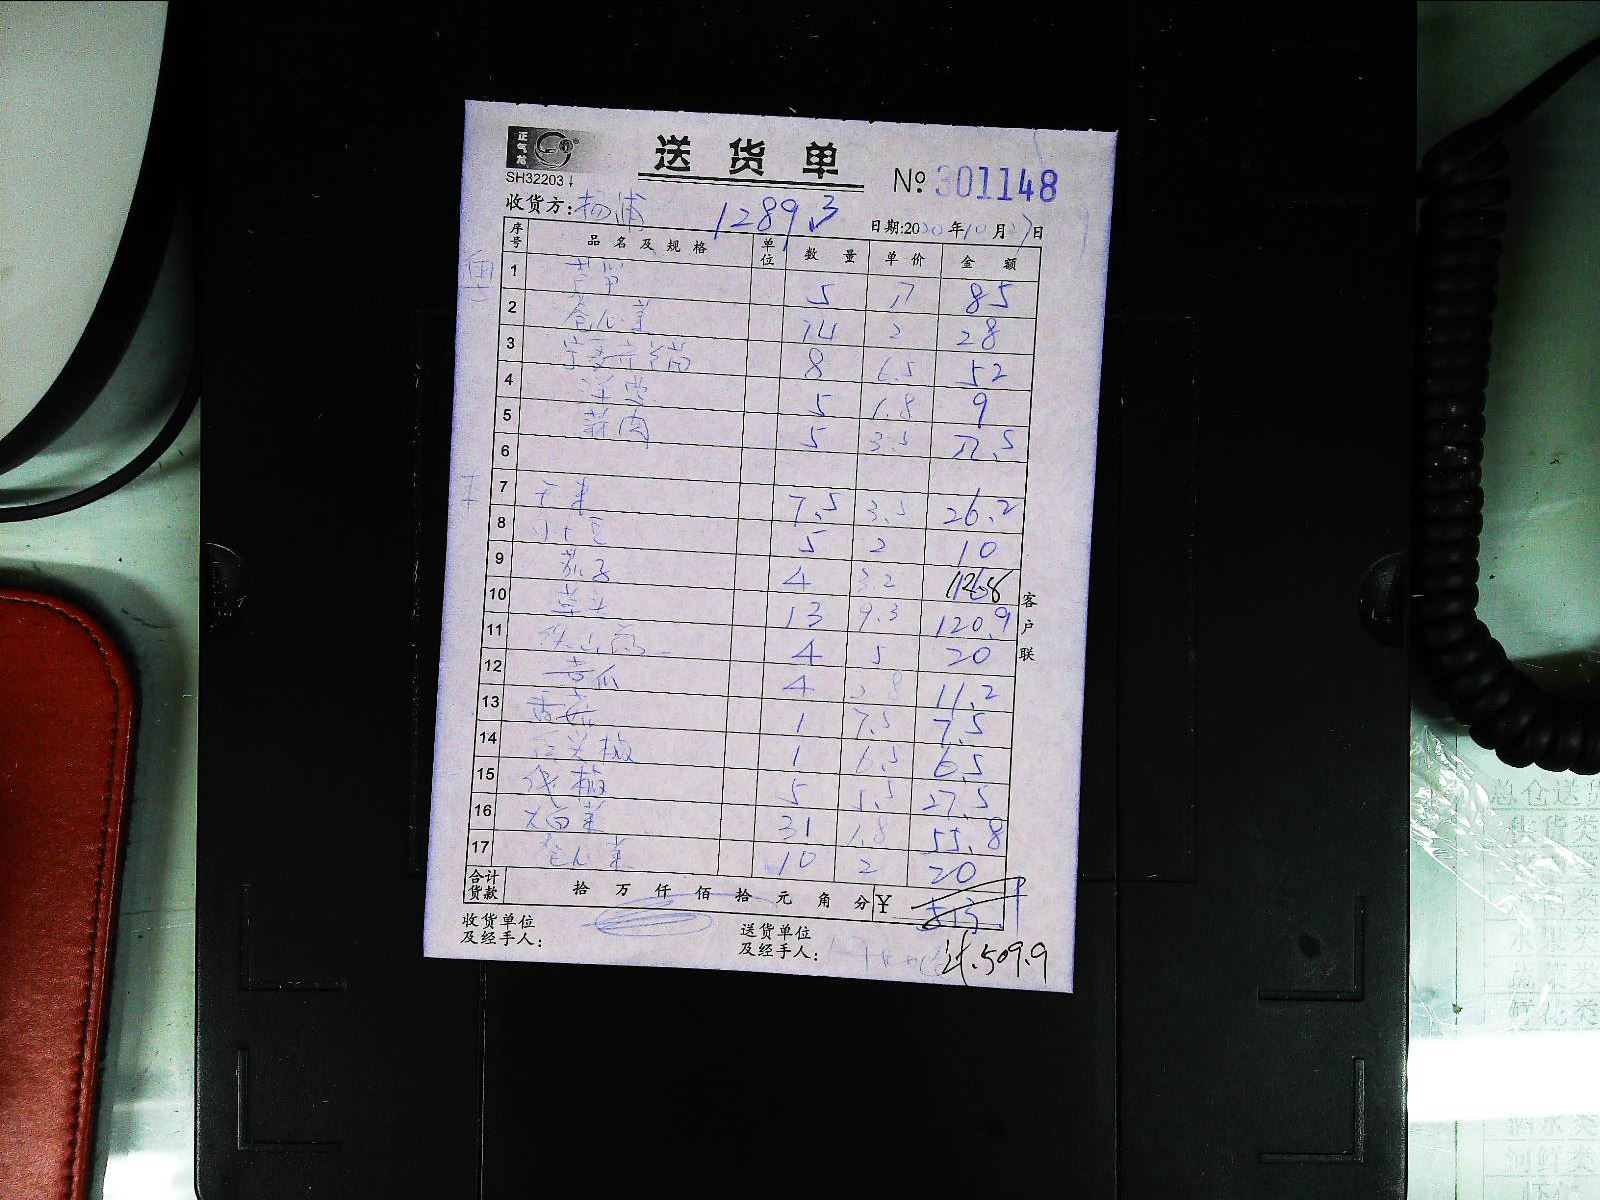 正气龙
送货单
№ 301148
SH32203
收货方: 杨浦 1289.3 日期:2020年10月27日
序号 品名及规格 单位 数量 单价 金额
1 5 17 85
2 卷心菜 14 2 28
3 8 6.5 52
4 洋葱 5 1.8 9
5 蒜肉 5 3.5 17.5
6
7 7.5 3.5 26.2
8 小土豆 5 2 10
9 茄子 4 3.2 12.8
10 13 9.3 120.9
11 4 5 20
12 黄瓜 4 2.8 11.2
13 香菇 1 7.5 7.5
14 尖椒 1 6.5 6.5
15 线椒 5 5.5 27.5
16 大白菜 31 1.8 55.8
17 卷心菜 10 2 20
合计货款 拾万仟佰拾元角分 ¥ 513
收货单位及经手人: 送货单位及经手人: 计.509.9
客户联
总仓送货
水产类
蔬菜类
酒水类
河鲜类